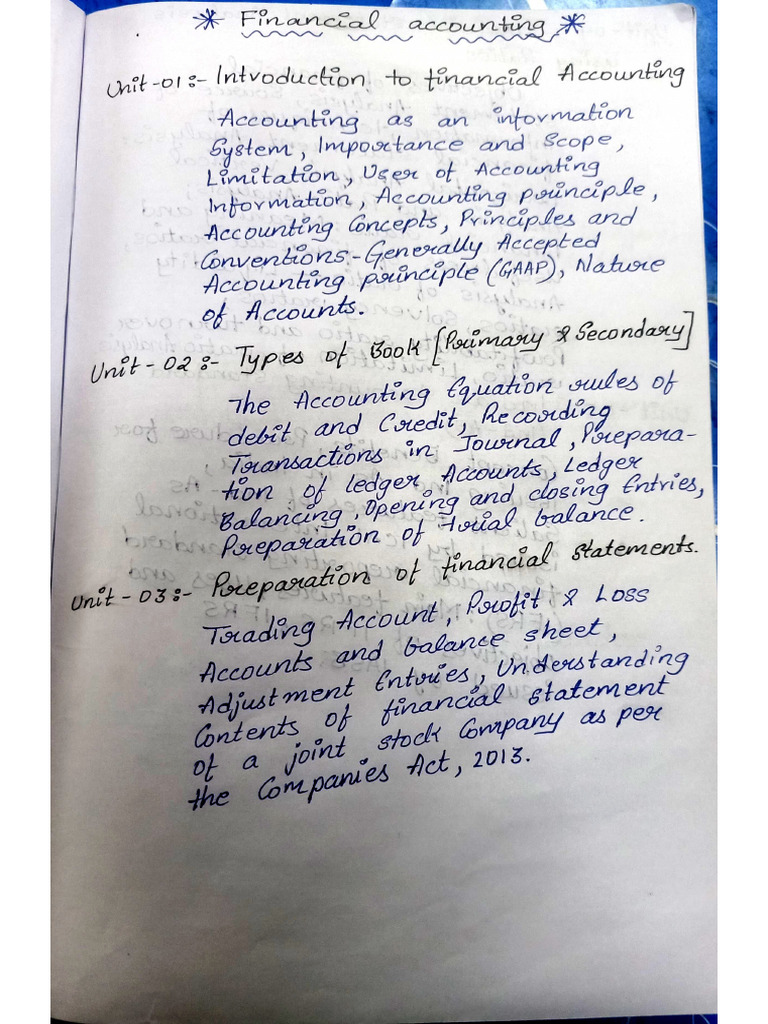 * Financial accounting *
Unit-01:- Introduction to financial Accounting
Accounting as an information
System, Importance and Scope,
Limitation, User of Accounting
Information, Accounting principle,
Accounting Concepts, Principles and
Conventions-Generally Accepted
Accounting principle (GAAP), Nature
of Accounts.
Unit-02:- Types of Book [Primary & Secondary]
The Accounting Equation rules of
debit and Credit, Recording
Transactions in Journal, Prepara-
tion of ledger Accounts, Ledger
Balancing, Opening and closing Entries,
Preparation of Trial balance.
Unit-03:- Preparation of financial statements.
Trading Account, Profit & Loss
Accounts and balance sheet,
Adjustment Entries, Understanding
Contents of financial statement
of a joint stock Company as per
the Companies Act, 2013.